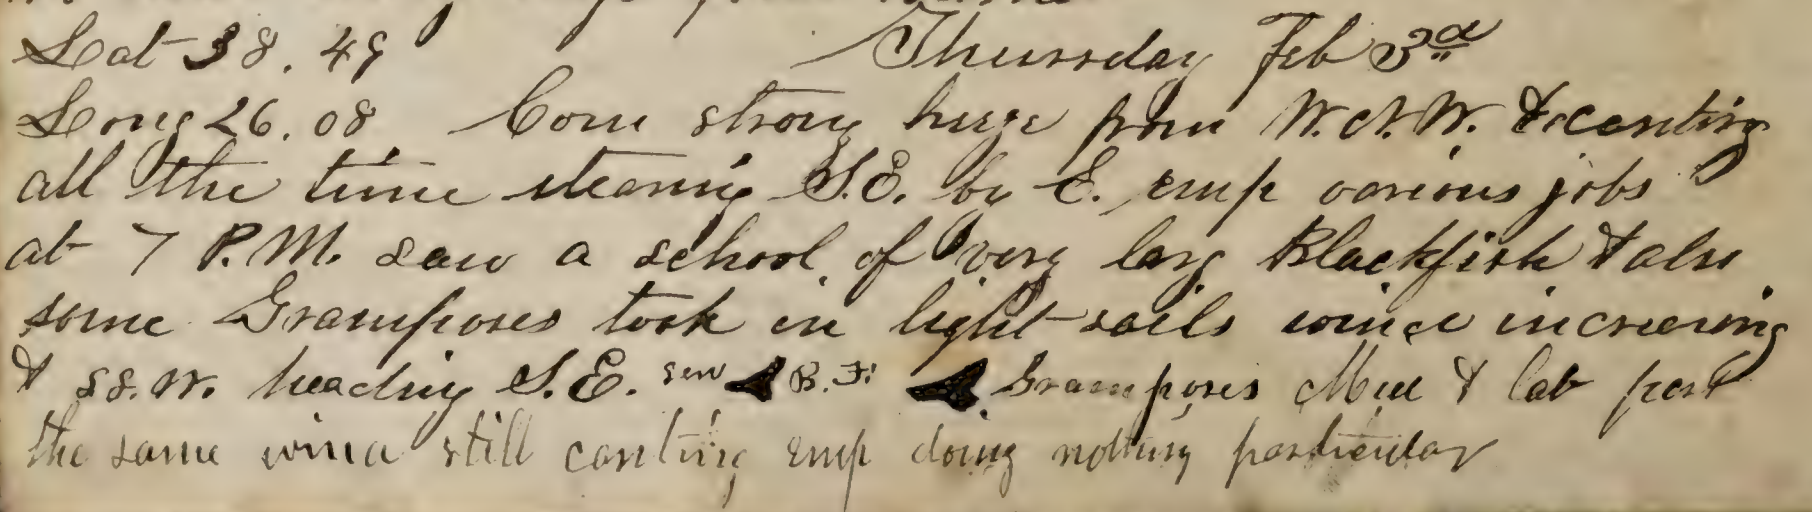 Lat 38.49 Thursday Feb 3d
Long 26.08 Com strong breeze from W.N.W. & canting
all the time stearing S.E. by E. emp various jobs
at 7 P.M. saw a school of very larg Blackfish & also
some Gramposes took in light sails wind increesing
& SS.W. heading S.E. sew B.F. Gramposes Mid & lat part
the same wind still canting emp doing nothing particular